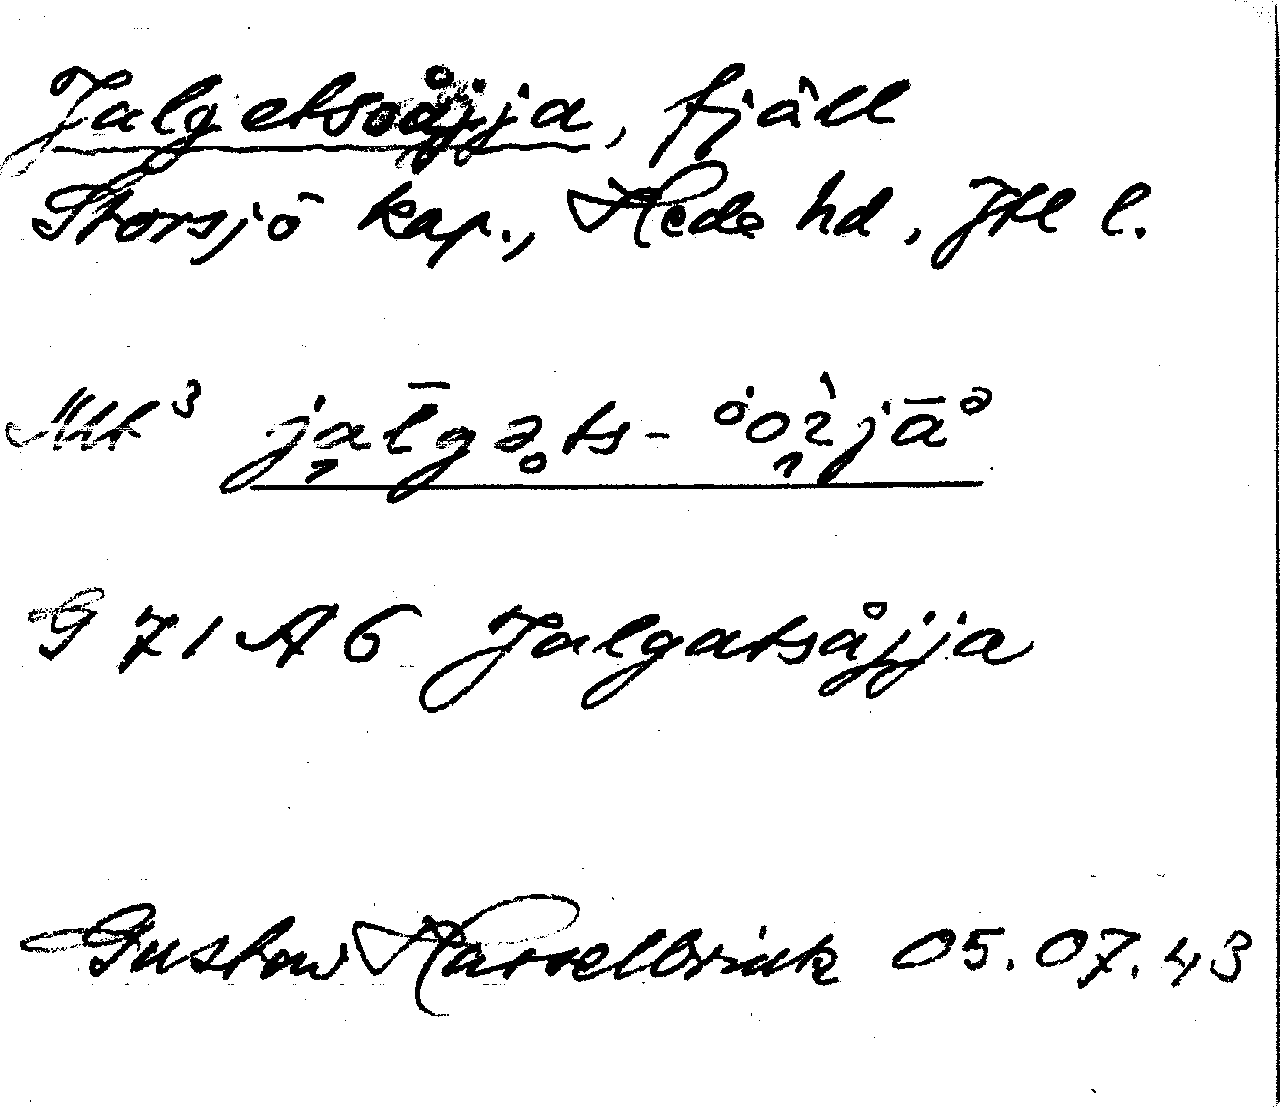 Jalgetsåjja, fjäll
Storsjö kap., Hede hd, Jtl l.
G 71 A 6 Jalgatsåjja
Gustav Hasselbrink 05.07.43